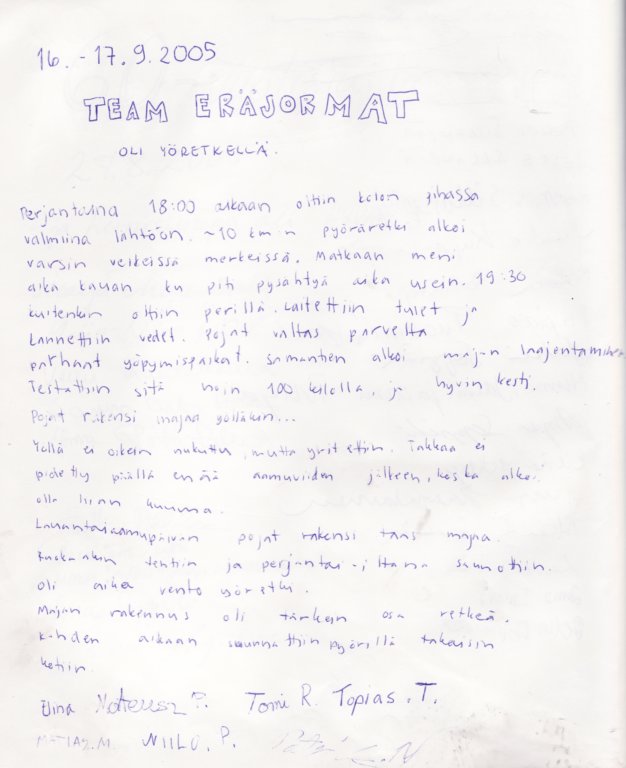 16. - 17.9.2005
TEAM ERÄJORMAT
OLI YÖRETKELLÄ.
Perjantaina 18:00 aikaan oltiin kolon pihassa
valmiina lähtöön. ~10 km:n pyöräretki alkoi
varsin veikeissä merkeissä. Matkaan meni
aika kauan ku piti pysähtyä aika usein. 19:30
kuitenkin oltiin perillä. Laitettiin tulet ja
kannettiin vedet. Pojat valtas parvelta
parhaat yöpymispaikat. Samantien alkoi majan laajentaminen
Testattiin sitä noin 100 kilolla, ja hyvin kesti.
Pojat rakensi majaa yölläkin...
Yöllä ei oikein nukuttu, mutta yritettiin. Takkaa ei
pidetty päällä enää aamuviiden jälkeen, koska alkoi
olla liian kuuma.
Lauantaiaamupäivän pojat rakensi taas majaa.
Ruokaakin tehtiin ja perjantai-iltana saunottiin.
Oli aika vento yöretki.
Majan rakennus oli tärkein osa retkeä.
Kahden aikaan suunnattiin pyörillä takaisin
kotiin.
Elina Tomi R. Topias. T.
MATIAS. M. NIILO. P.